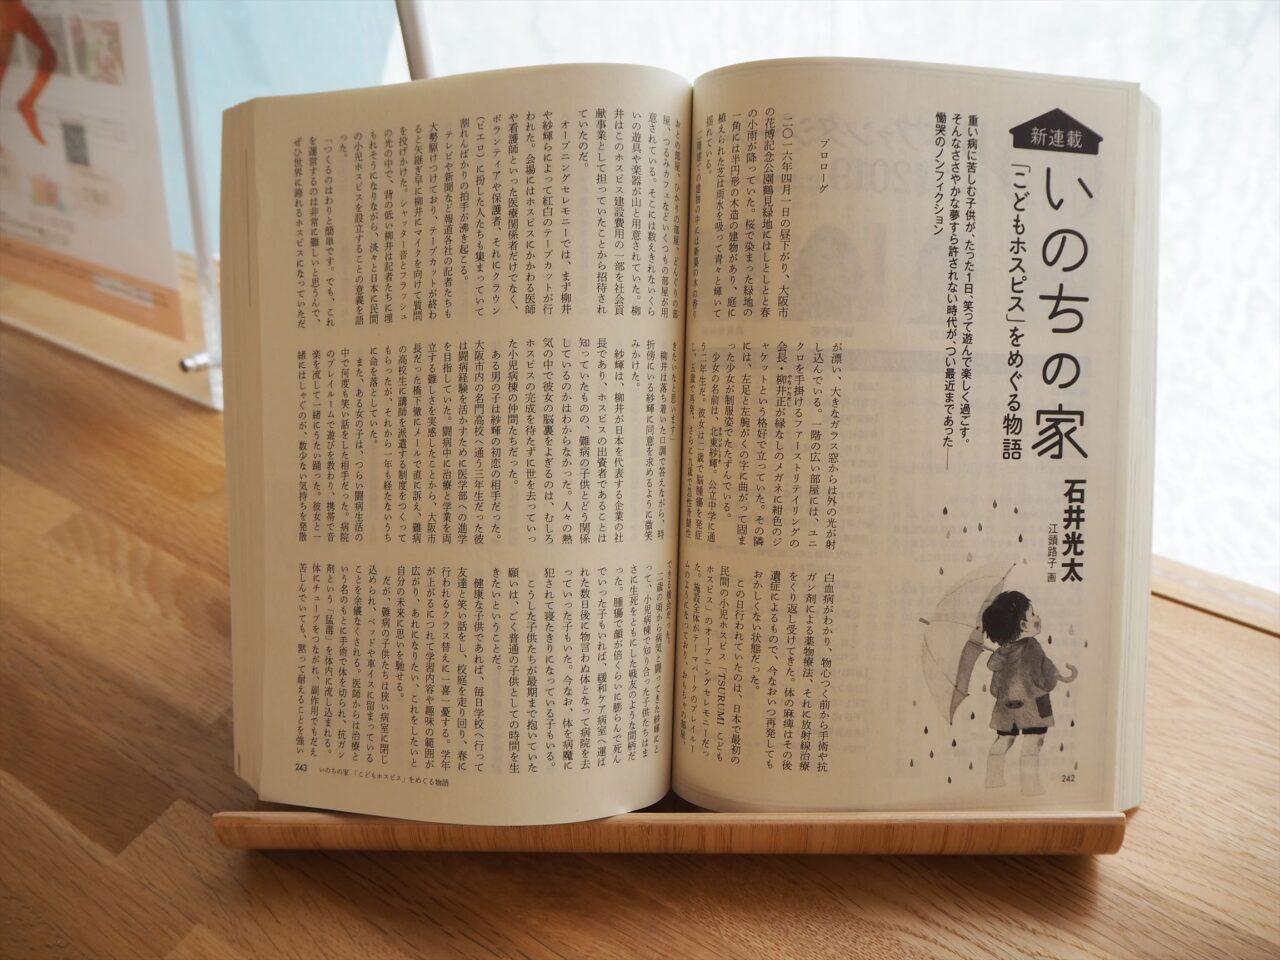 新連載
いのちの家
「こどもホスピス」をめぐる物語
石井光太
江頭路子 画
重い病に苦しむ子供が、たった1日、笑って遊んで楽しく過ごす。
そんなささやかな夢すら許されない時代が、つい最近まであった──
慟哭のノンフィクション
プロローグ
二〇一六年四月一日の昼下がり、大阪市
の花博記念公園鶴見緑地にはしとしとと春
の小雨が降っていた。桜で染まった緑地の
一角には半円形の木造の建物があり、庭に
植えられた芝は雨水を吸って青々と輝いて
揺れている。
二階建ての建物の中には新築の木の香り
が漂い、大きなガラス窓からは外の光が射
し込んでいる。一階の広い部屋には、ユニ
クロを手掛けるファーストリテイリングの
会長・柳井正が縁なしのメガネに紺色のジ
ャケットという格好で立っていた。その隣
には、左足と左腕がくの字に曲がって固ま
った少女が制服姿でたたずんでいる。
少女の名前は、北東紗輝。公立中学に通
う二年生だ。彼女は二歳で脳腫瘍を発症
し、五歳で再発、さらに九歳で急性骨髄性
白血病がわかり、物心つく前から手術や抗
ガン剤による薬物療法、それに放射線治療
をくり返し受けてきた。体の麻痺はその後
遺症によるもので、今なおいつ再発しても
おかしくない状態だった。
この日行われていたのは、日本で最初の
民間の小児ホスピス「TSURUMI こども
ホスピス」のオープニングセレモニーだっ
た。施設全体がテーマパークのプレイルー
ムのようになっており、おもちゃの部屋、
242
おとの部屋、ひかりの部屋、どんぐりの部
屋、つるみカフェなどいくつもの部屋が用
意されている。そこには数えきれないくら
いの遊具や楽器が山と用意されていた。柳
井はこのホスピス建設費用の一部を社会貢
献事業として担っていたことから招待され
ていたのだ。
オープニングセレモニーでは、まず柳井
や紗輝らによって紅白のテープカットが行
われた。会場にはホスピスにかかわる医師
や看護師といった医療関係者だけでなく、
ボランティアや保護者、それにクラウン
(ピエロ)に扮した人たちも集まっていて
割れんばかりの拍手が沸き起こる。
テレビや新聞など報道各社の記者たちも
大勢駆けつけており、テープカットが終わ
ると矢継ぎ早に柳井にマイクを向けて質問
を投げかけた。シャッター音とフラッシュ
の光の中で、背の低い柳井は記者たちに埋
もれそうになりながら、淡々と日本に民間
の小児ホスピスを設立することの意義を語
った。
「つくるのはわりと簡単です。でも、これ
を運営するのは非常に難しいと思うんで、
ぜひ世界に誇れるホスピスになっていただ
きたいなと思います」
柳井は落ち着いた口調で答えながら、時
折傍にいる紗輝に同意を求めるように微笑
みかけた。
紗輝は、柳井が日本を代表する企業の社
長であり、ホスピスの出資者であることは
知っていたものの、難病の子供とどう関係
しているのかはわからなかった。人々の熱
気の中で彼女の脳裏をよぎるのは、むしろ
ホスピスの完成を待たずに世を去っていっ
た小児病棟の仲間たちだった。
ある男の子は紗輝の初恋の相手だった。
大阪市内の名門高校へ通う三年生だった彼
は闘病経験を活かすために医学部への進学
を目指していた。闘病中に治療と学業を両
立する難しさを実感したことから、大阪市
長だった橋下徹にメールで直に訴え、難病
の高校生に講師を派遣する制度をつくって
もらったが、それから一年も経たないうち
に命を落としていた。
また、ある女の子は、つらい闘病生活の
中で何度も笑い話をした相手だった。病院
のプレイルームで遊びを教わり、携帯で音
楽を流して一緒にうたい踊った。彼女と一
緒にはしゃぐのが、数少ない気持ちを発散
できる機会だった。
二歳の頃から病気と闘ってきた紗輝にと
って、小児病棟で知り合った子供たちはま
さに生死をともにした戦友のような間柄だ
った。腫瘍で顔が倍くらいに膨らんで死ん
でいった子もいれば、緩和ケア病室へ運ば
れた数日後に物言わぬ体となって病院を去
っていった子もいた。今なお、体を病魔に
犯されて寝たきりになっている子もいる。
こうした子供たちが最期まで抱いていた
願いは、ごく普通の子供としての時間を生
きたいということだ。
健康な子供であれば、毎日学校へ行って
友達と笑い話をし、校庭を走り回り、春に
行われるクラス替えに一喜一憂する。学年
が上がるにつれて学習内容や趣味の範囲が
広がり、あれになりたい、これをしたいと
自分の未来に思いを馳せる。
だが、難病の子供たちは狭い病室に閉じ
込められ、ベッドや車イスに留まっている
ことを余儀なくされる。医師からは治療と
いう名のもとに手術で体を切られ、抗ガン
剤という「猛毒」を体内に流し込まれる。
体にチューブをつながれ、副作用でもだえ
苦しんでいても、黙って耐えることを強い
243
いのちの家 「こどもホスピス」をめぐる物語